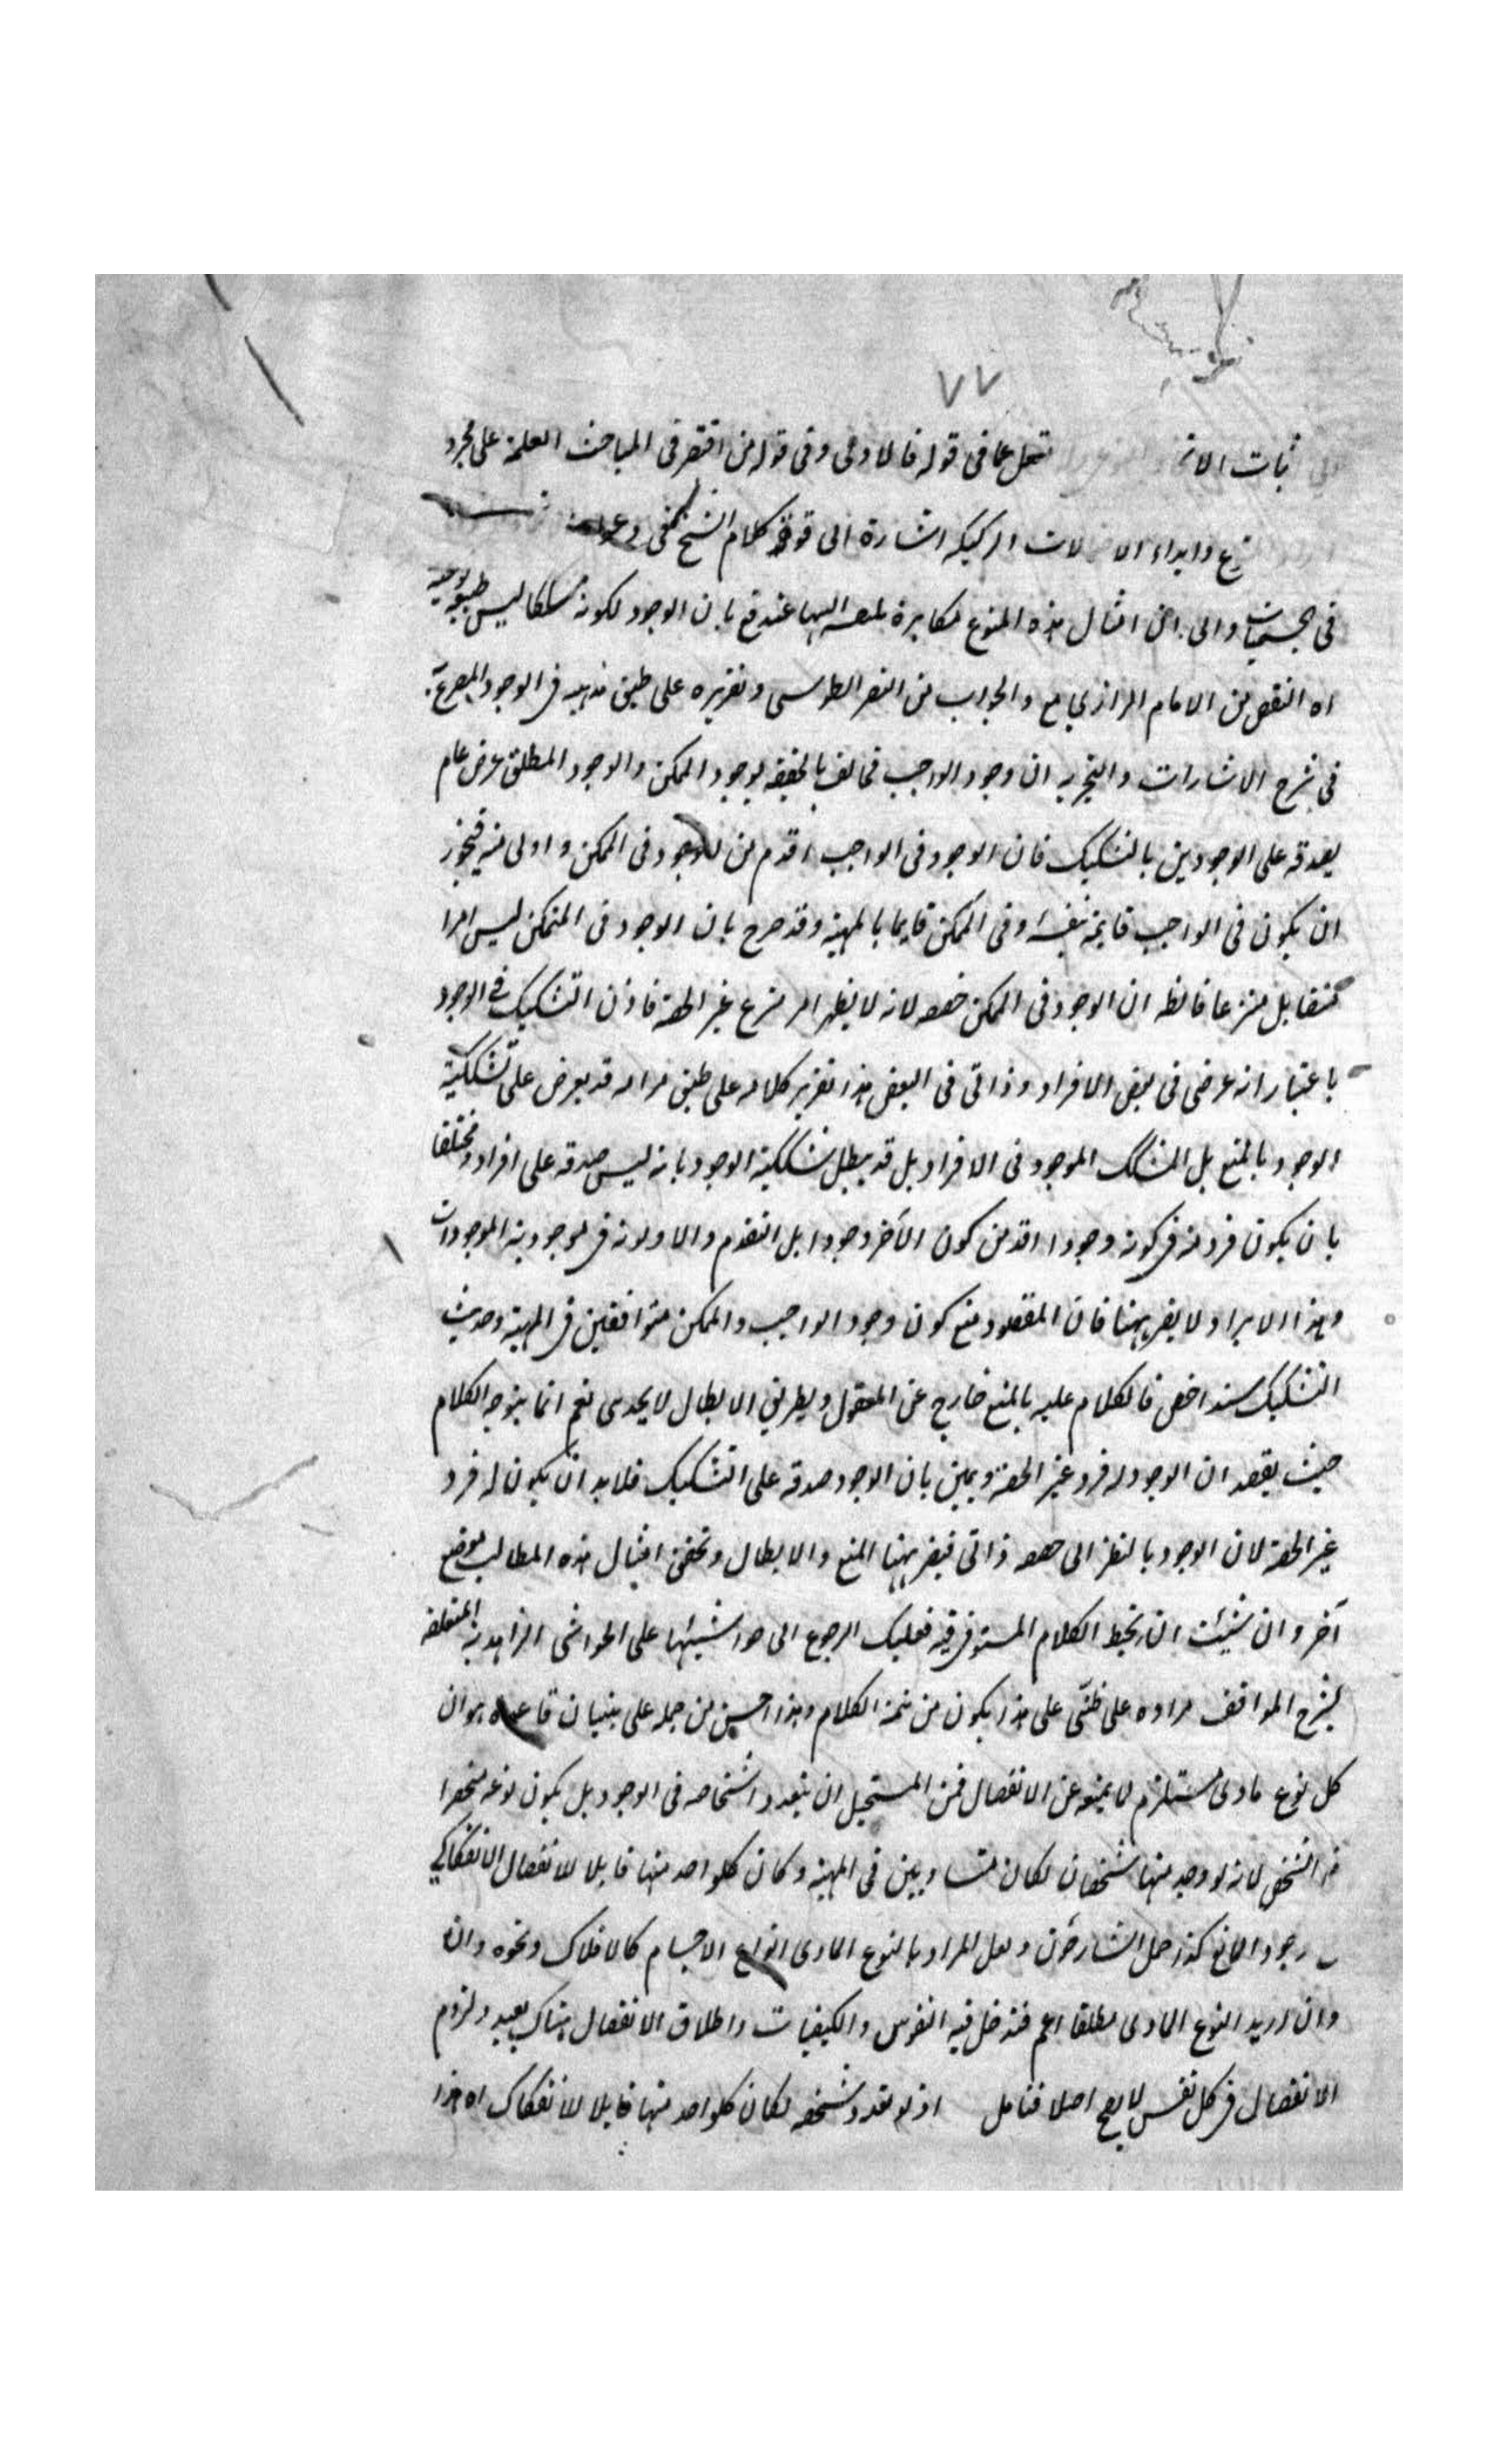 ٧٧
ثبات الات تحمل عما في قوله فالاولى وفي قوله من اقتصر في المباحث العلمية على مجرد
وابداء الاحتمالات الركيكة اشارة الى قوة كلام الشيخ
في الجسميات والى ان امثال هذه المنوع مكابرة اليها عندفع بان الوجود لكونه مشككا ليس طبيعة نوعية
اه النقض من الامام الرازي مع والجواب من النصير الطوسي وتقريره على طبق مذهبه في الوجود المصرح به
في شرح الاشارات والتجريد ان وجود الواجب مخالف بالحقيقة لوجود الممكن والوجود المطلق عرض عام
يصدق على الوجودين بالتشكيك فان الوجود في الواجب اقدم من الوجود في الممكن واولى منه فيجوز
ان يكون في الواجب قايمة بنفسه وفي الممكن قايما بالمهية وقد صرح بان الوجود في الممكن ليس امرا
منتزعا فالظ ان الوجود في الممكن حصه لانه لا يظهر امر منتزع غير الحصة فاذن التشكيك في الوجود
باعتبار انه عرضي في بعض الافراد وذاتي في البعض هذا تقرير كلامه على طبق مرامه قد يعرض على تشكيكية
الوجود بالمنع بل المشكك الموجود في الافراد بل قد يبطل تشكيكية الوجود بانه ليس صدقه على افراده مختلفا
بان يكون فرد منه في كونه وجودا اقدم من كون الآخر وجودا بل التقدم والاولوية في موجودية الموجودات
وهذا الايراد لا يضر ههنا فان المقصود منع كون وجود الواجب والممكن متوافقين في المهية وحديث
التشكيك سند اخص فالكلام عليه بالمنع خارج عن المعقول وبطريق الابطال لا يجدى نعم انما يتوجه الكلام
حيث يقصد ان الوجود له فرد غير الحصة ويبين بان الوجود صدقه على التشكيك فلا بد ان يكون له فرد
غير الحصة لان الوجود بالنظر الى حصصه ذاتي فيضر ههنا المنع والابطال وتحقيق امثال هذه المطالب موضع
آخر وان شئت ان تحيط الكلام المستوفى فيه فعليك الرجوع الى حواشينا على الحواشى الزاهدية المتعلقة
بشرح المواقف مراده على ظنى على هذا يكون من تتمة الكلام وهذا احسن من حمله على بنيان قاعدة هو ان
كل نوع مادى مستلزم لا يمنع عن الانفصال فمن المستحيل ان يتعدد اشخاصه في الوجود بل يكون نوعه منحصرا
في الشخص لانه لو وجد منها شخصان لكان متساويين في المهية وكان كلواحد منها قابلا للانفصال الانفكاكي
وجود المانع كذا حمل الشارحون ولعل المراد بالنوع المادى انواع الاجسام كالافلاك ونحوه وان
وان اريد النوع المادى مطلقا اعم فتدخل فيه النفوس والكيفيات واطلاق الانفصال هناك بعيد ولزوم
الانفصال في كل نفس لا يصح اصلا فتامل اذ لو تعدد شخصه لكان كلواحد منها قابلا للانفكاك اه هذا